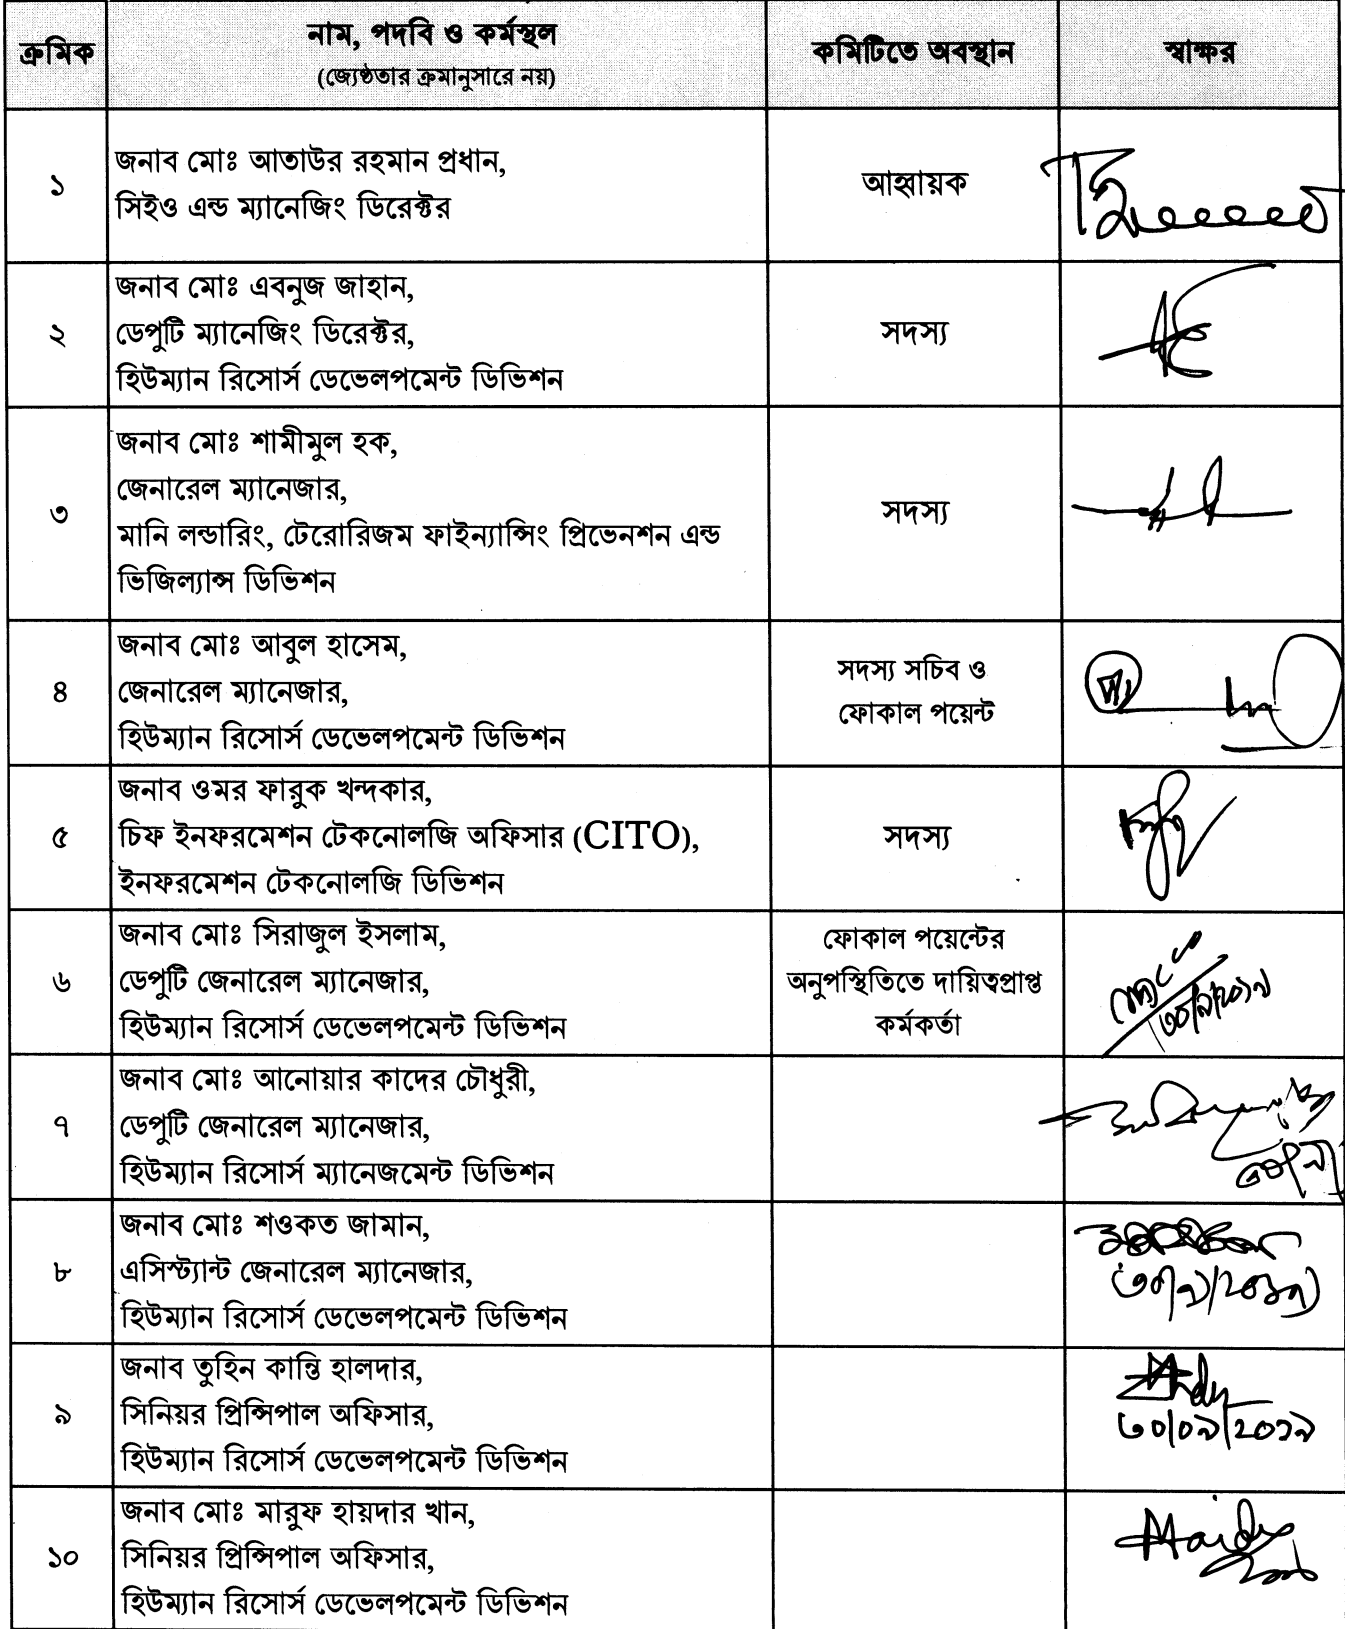 ক্রমিক
নাম, পদবি ও কর্মস্থল
(জ্যেষ্ঠতার ক্রমানুসারে নয়)
কমিটিতে অবস্থান
স্বাক্ষর
১
জনাব মোঃ আতাউর রহমান প্রধান,
সিইও এন্ড ম্যানেজিং ডিরেক্টর
আহ্বায়ক
২
জনাব মোঃ এবনুজ জাহান,
ডেপুটি ম্যানেজিং ডিরেক্টর,
হিউম্যান রিসোর্স ডেভেলপমেন্ট ডিভিশন
সদস্য
৩
জনাব মোঃ শামীমুল হক,
জেনারেল ম্যানেজার,
মানি লন্ডারিং, টেরোরিজম ফাইন্যান্সিং প্রিভেনশন এন্ড
ভিজিল্যান্স ডিভিশন
সদস্য
৪
জনাব মোঃ আবুল হাসেম,
জেনারেল ম্যানেজার,
হিউম্যান রিসোর্স ডেভেলপমেন্ট ডিভিশন
সদস্য সচিব ও
ফোকাল পয়েন্ট
৫
জনাব ওমর ফারুক খন্দকার,
চিফ ইনফরমেশন টেকনোলজি অফিসার (CITO),
ইনফরমেশন টেকনোলজি ডিভিশন
সদস্য
৬
জনাব মোঃ সিরাজুল ইসলাম,
ডেপুটি জেনারেল ম্যানেজার,
হিউম্যান রিসোর্স ডেভেলপমেন্ট ডিভিশন
ফোকাল পয়েন্টের
অনুপস্থিতিতে দায়িত্বপ্রাপ্ত
কর্মকর্তা
৩০/৯/২০১৯
৭
জনাব মোঃ আনোয়ার কাদের চৌধুরী,
ডেপুটি জেনারেল ম্যানেজার,
হিউম্যান রিসোর্স ম্যানেজমেন্ট ডিভিশন
৮
জনাব মোঃ শওকত জামান,
এসিস্ট্যান্ট জেনারেল ম্যানেজার,
হিউম্যান রিসোর্স ডেভেলপমেন্ট ডিভিশন
৩০/৯/২০১৯
৯
জনাব তুহিন কান্তি হালদার,
সিনিয়র প্রিন্সিপাল অফিসার,
হিউম্যান রিসোর্স ডেভেলপমেন্ট ডিভিশন
৩০/০৯/২০১৯
১০
জনাব মোঃ মারুফ হায়দার খান,
সিনিয়র প্রিন্সিপাল অফিসার,
হিউম্যান রিসোর্স ডেভেলপমেন্ট ডিভিশন